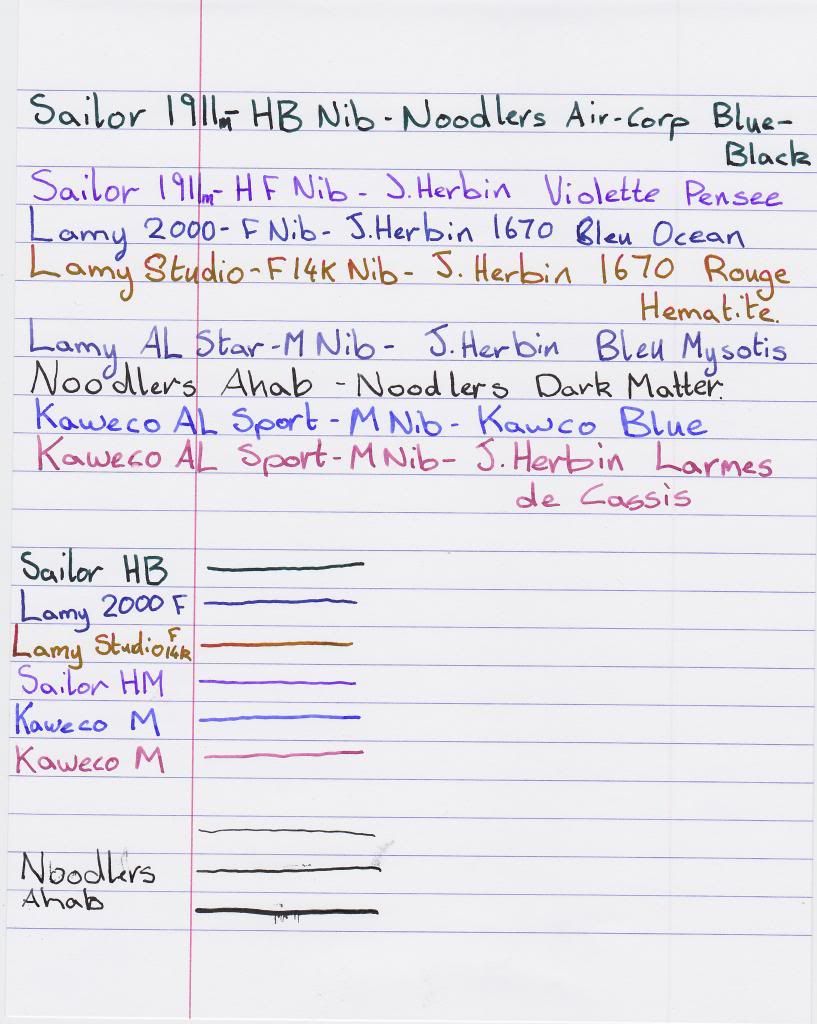 Sailor 1911m- HB Nib - Noodlers Air-Corp Blue-
Black
Sailor 1911m- HF Nib - J.Herbin Violette Pensee
Lamy 2000- F Nib- J.Herbin 1670 Bleu Ocean
Lamy Studio-F14K Nib- J. Herbin 1670 Rouge
Hematite.
Lamy AL Star -M Nib- J.Herbin Bleu Mysotis
Noodlers Ahab - Noodlers Dark Matter.
Kaweco AL Sport - M Nib- Kawco Blue
Kaweco AL Sport-M Nib- J.Herbin Larmes
de Cassis
Sailor HB
Lamy 2000 F
Lamy Studio F 14K
Sailor HM
Kaweco M
Kaweco M
Noodlers
Ahab